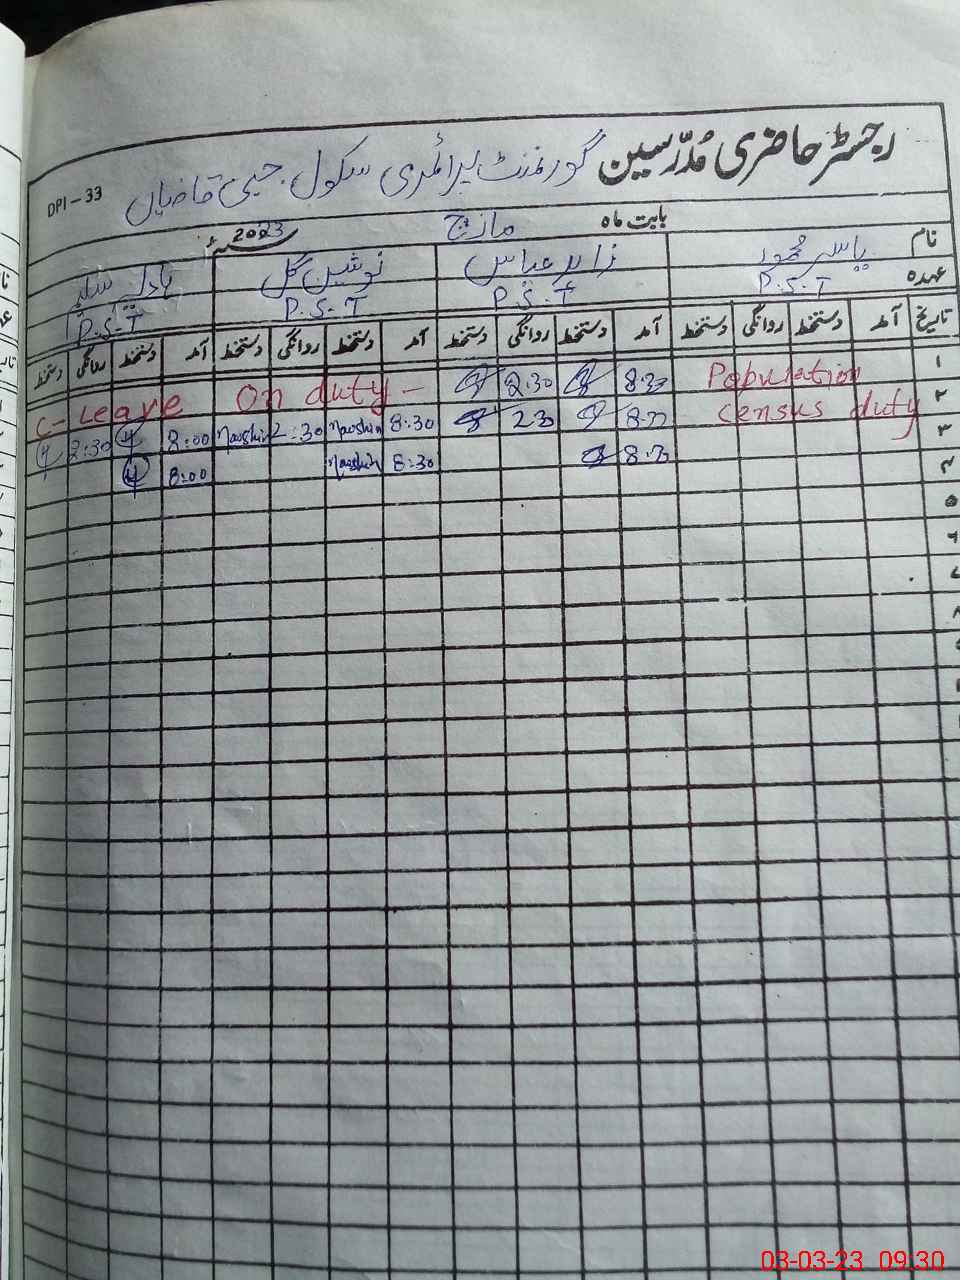 رجسٹر حاضری مُدرّسین گورنمنٹ پرائمری سکول جبی قاضیاں
DPI-33
بابت ماہ مارچ 2023ء
نام یاسر محمود زاہد عباس نوشین گل
عہدہ P.S.T P.S.T P.S.T P.S.T
تاریخ آمد دستخط روانگی دستخط آمد دستخط روانگی دستخط آمد دستخط روانگی دستخط آمد دستخط روانگی دستخط
۱ Population 8:30 2:30 On duty - C- Leave
۲ Census duty 8:30 2:30 8:30 Naoshin 2:30 Naoshin 8:00 2:30
۳ 8:30 8:30 Naoshin 8:00
۴
۵
۶
۷
۸
03-03-23 09:30